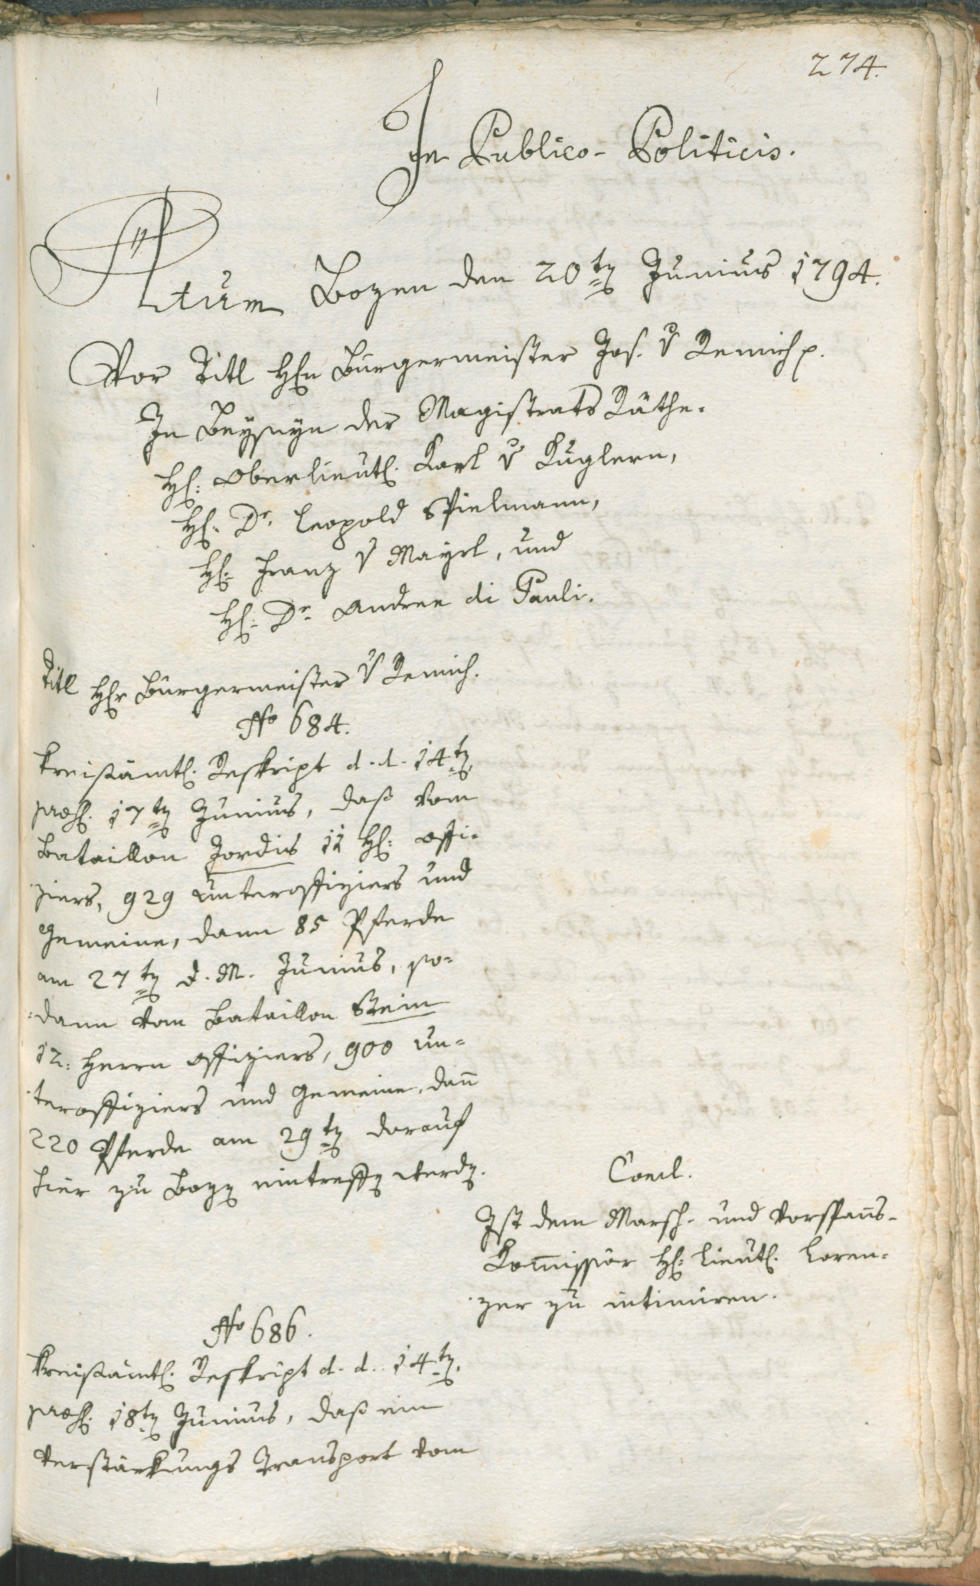 274.
In Publico-Politicis.
Actum Bozen den 20ten Junius 1794.
Vor Titl H̅en Bürgermeister Jos. v Remich p.
In Beyseyn der Magistrats Räthe.
H: Oberlieut. Karl v Kuglern,
H: Dr. Leopold Spielmann,
H: Franz v Mayrl, und
H: Dr. Andree di Pauli.
Titl Her Bürgermeister v Remich.
No 684.
Kreisämtl. Reskript d. d. 14ten
præs. 17ten Junius, daß vom
Bataillon Jordis 12 H: Offi-
ziers, 929 Unteroffiziers und
Gemeine, dann 85 Pferde
am 27ten d. M. Junius, so-
dann vom Bataillon Stein
12: Herrn Offiziers, 900 Un-
teroffiziers und Gemeine, dañ
220 Pferde am 29ten darauf
hier zu Bozen eintreffen werden.
Concl.
Ist dem Marsch- und Vorspañs-
Kom̅issär H: Lieut. Loren-
zer zu intimiren.
No 686.
Kreisämtl. Reskript d. d. 14ten
præs. 18ten Junius, daß ein
Verstärkungs Transport vom